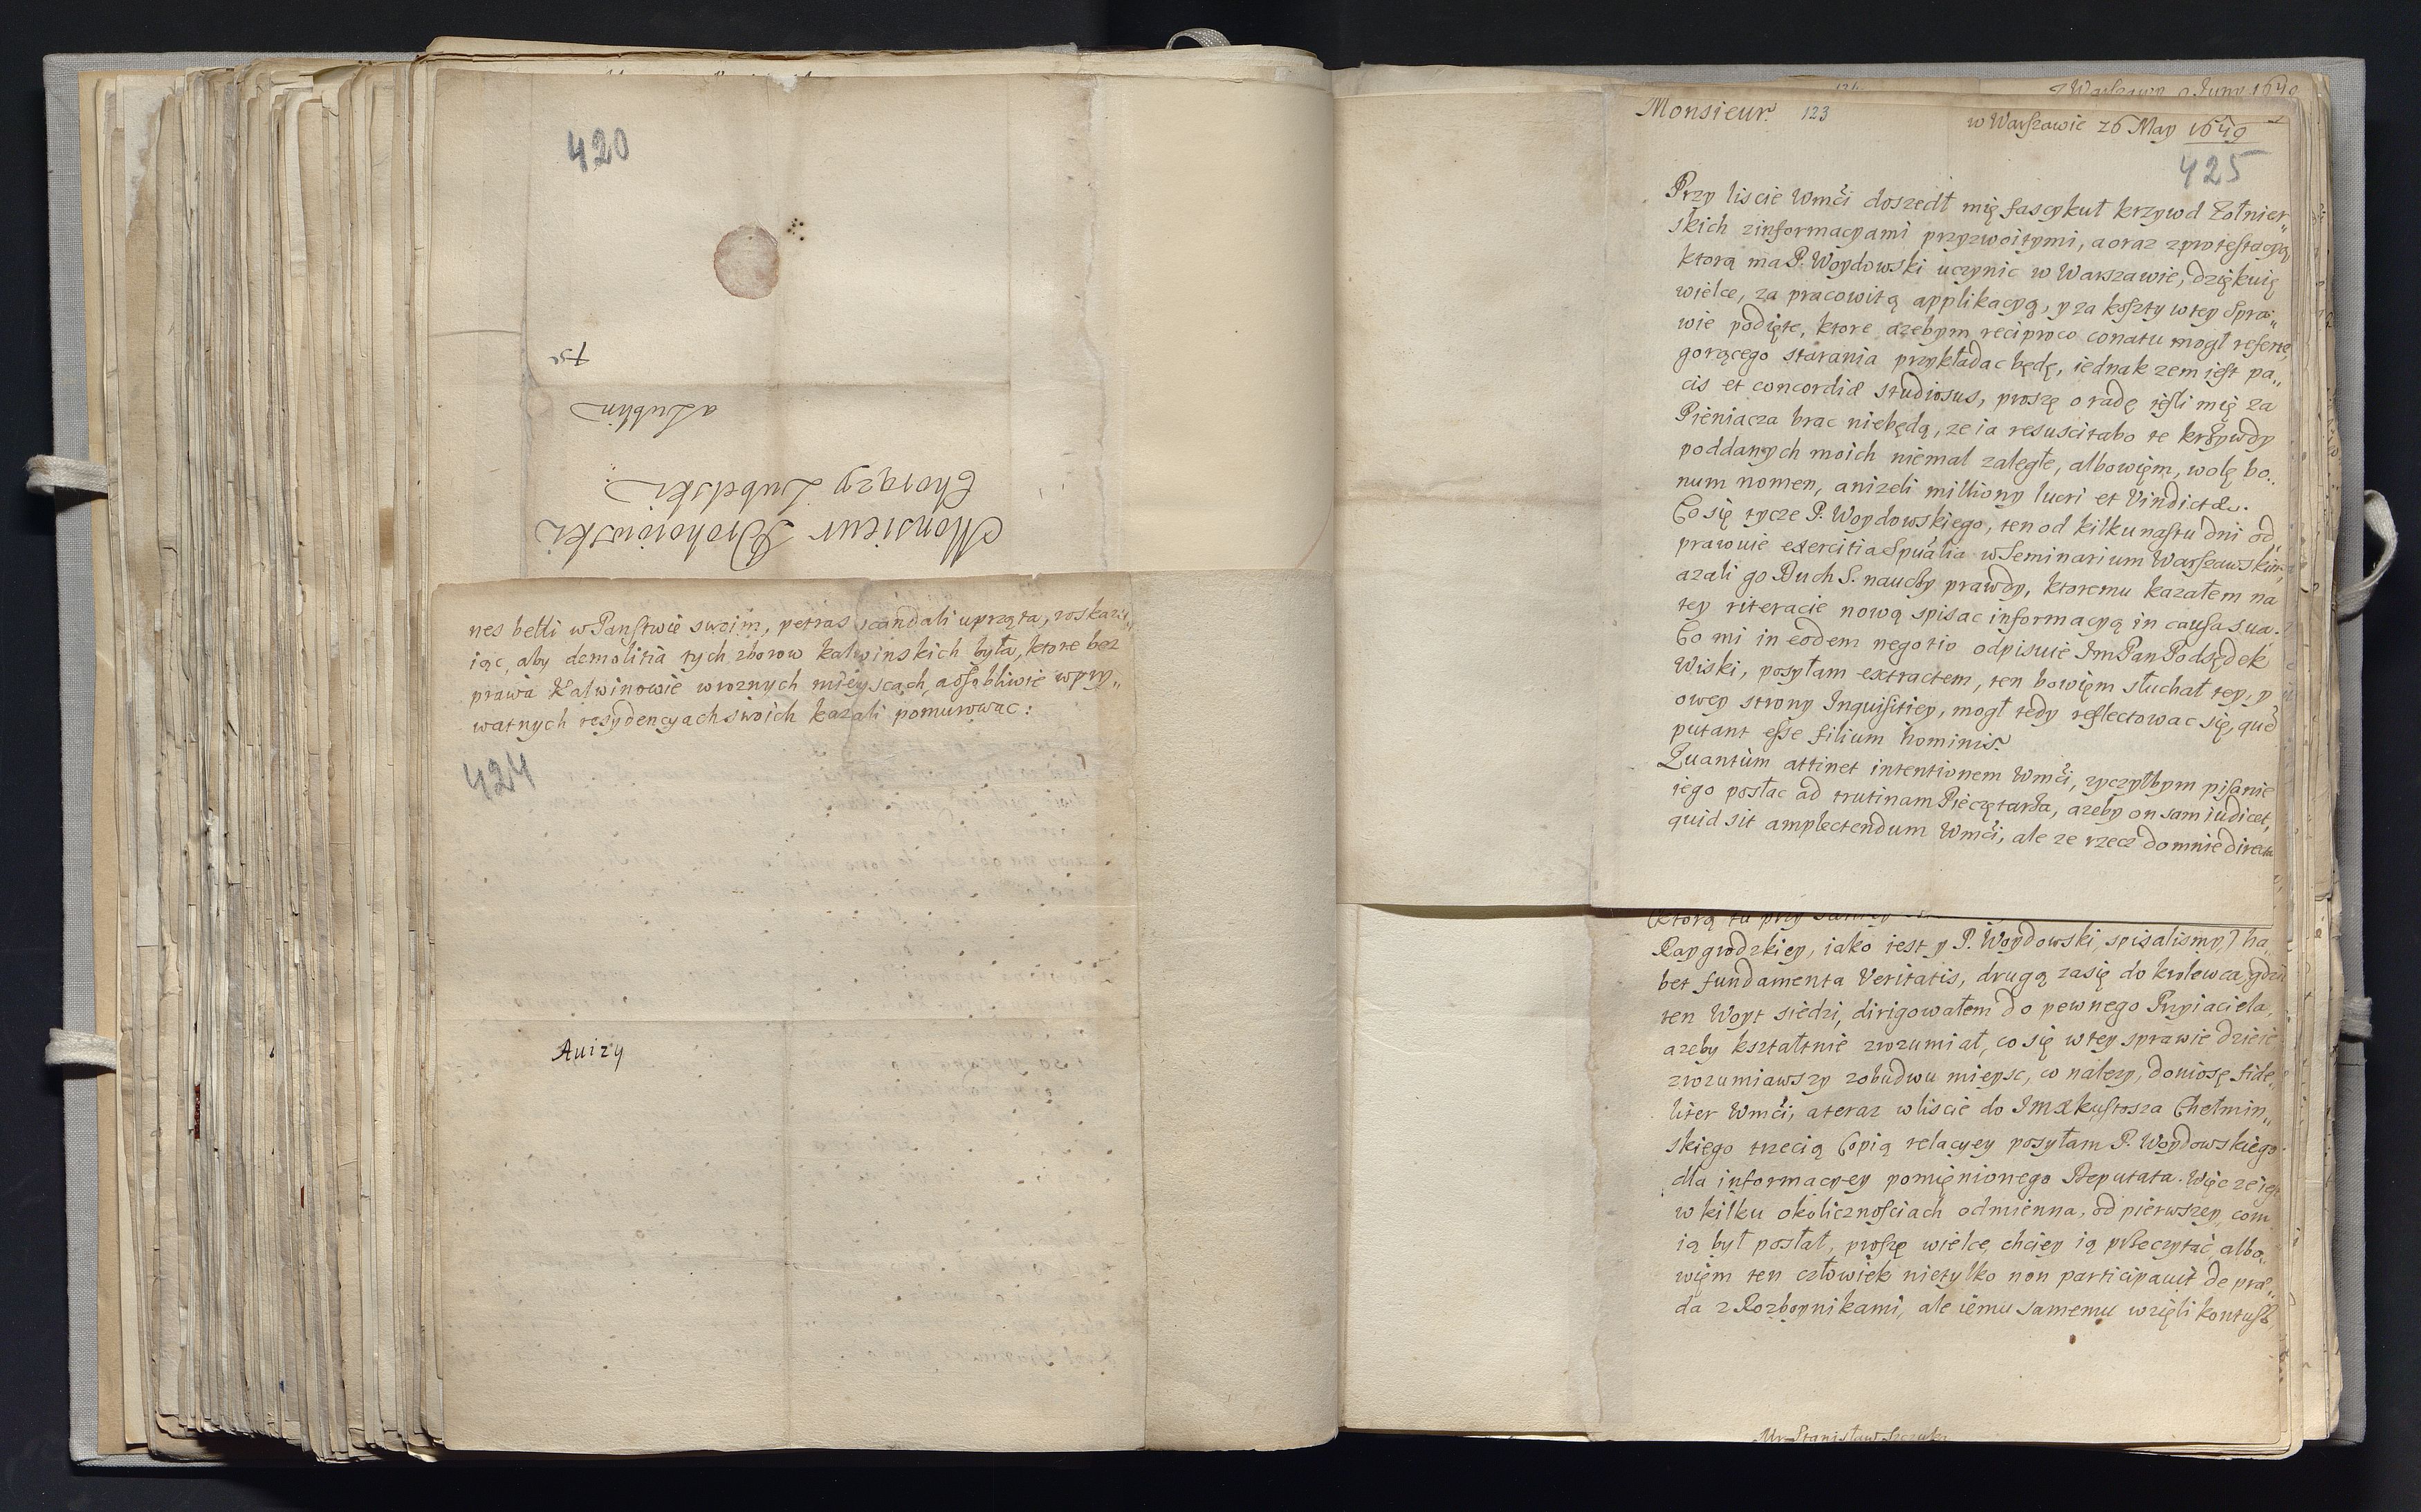 420
tse
a Lublin
Chorąży Lubelski
Monsieur Drohoiowski
nes belli w Panstwie swoim, petras scandali uprząta, roskazu„
iąc, aby demolitia tych zborow kalwinskich była, ktore bez
prawa Kalwinowie w roznych mieyscach, assobliwie w pry„
watnych resydencyach swoich kazali pomurowac:
424
Avizy
Monsieur 123
w Warszawie 26 May
425
Przy liscie Wmći doszedł mię fascykuł krzywd Zołnier„
skich z informacyami przyzwoitymi, a oraz z protestacyą
ktorą ma P. Woydowski uczynic w Warszawie, dziękuię
wielce, za pracowitą applikacyą, y za koszty w tey Spra„
wie podięte, ktore azebym reciproco conatu mogł referre,
gorącego starania przykładac będę, iednak zem iest pa„
cis et concordiæ studiosus, proszę o radę iesli mię za
Pieniacza brac niebędą, ze ia resuscitabo te krzywdy
poddanych moich niemal zaległe, albowięm, wolę bo„
num nomen, anizeli milliony lucri et Vindictæ.
Co się tycze P. Woydowskiego, ten od kilkunastu dni od„
prawuie exercitia Spũalia w Seminarium Warszawskim,
azali go Duch S. nauczy prawdy, ktoremu kazałem na
tey literacie nową spisac informacyą in causa sua.
Co mi in eodem negotio odpisuie Im Pan Podsędek
Wiski, posyłam extractem, ten bowięm słuchał tey, y
owey strony Inquisitiey, mogł tedy reflectowac się, quẽ
putant esse filium hominis.
Quantùm attinet intentionem Wmći, zyczyłbym pisanie
iego posłac ad trutinam Pieczętarza, azeby on sam iudicet,
quid sit amplectendum Wmći, ale ze rzecz do mnie
(ktorą tu przy
Raygrodzkiey, iako iest y P. Woydowski, spisalismy) ha„
bet fundamenta Veritatis, drugą zasię do krolewca, gdzie
ten Woyt siedzi, dirigowałem do pewnego Przyiaciela,
azeby kształtnie zrozumiał, co się w tey sprawie dzieie
zrozumiawszy z obudwu mieysc, co nalezy, doniosę fide„
liter Wmći, a teraz w liscie do Imx kustosza Chełmin„
skiego trzecią Copią relacyey posyłam P. Woydowskiego
dla informacyey pomięnionego Deputata. Więc ze iest
w kilku okolicznosciach odmienna, od pierwszey, com
ią był posłał, proszę wielce, chciey ią przeczytać, albo„
więm ten człowiek nietylko non participauit de præ„
da z Rozboynikami, ale iemu samemu wzięli kontusz,
Mr Stanisław Szczuka